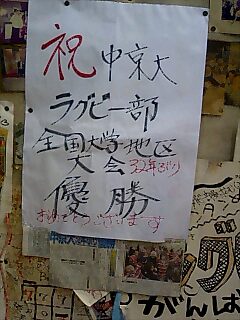 祝 中京大
ラグビー部
全国大学地区
大会 32年ぶり
優勝
おめでとうございます
がんば